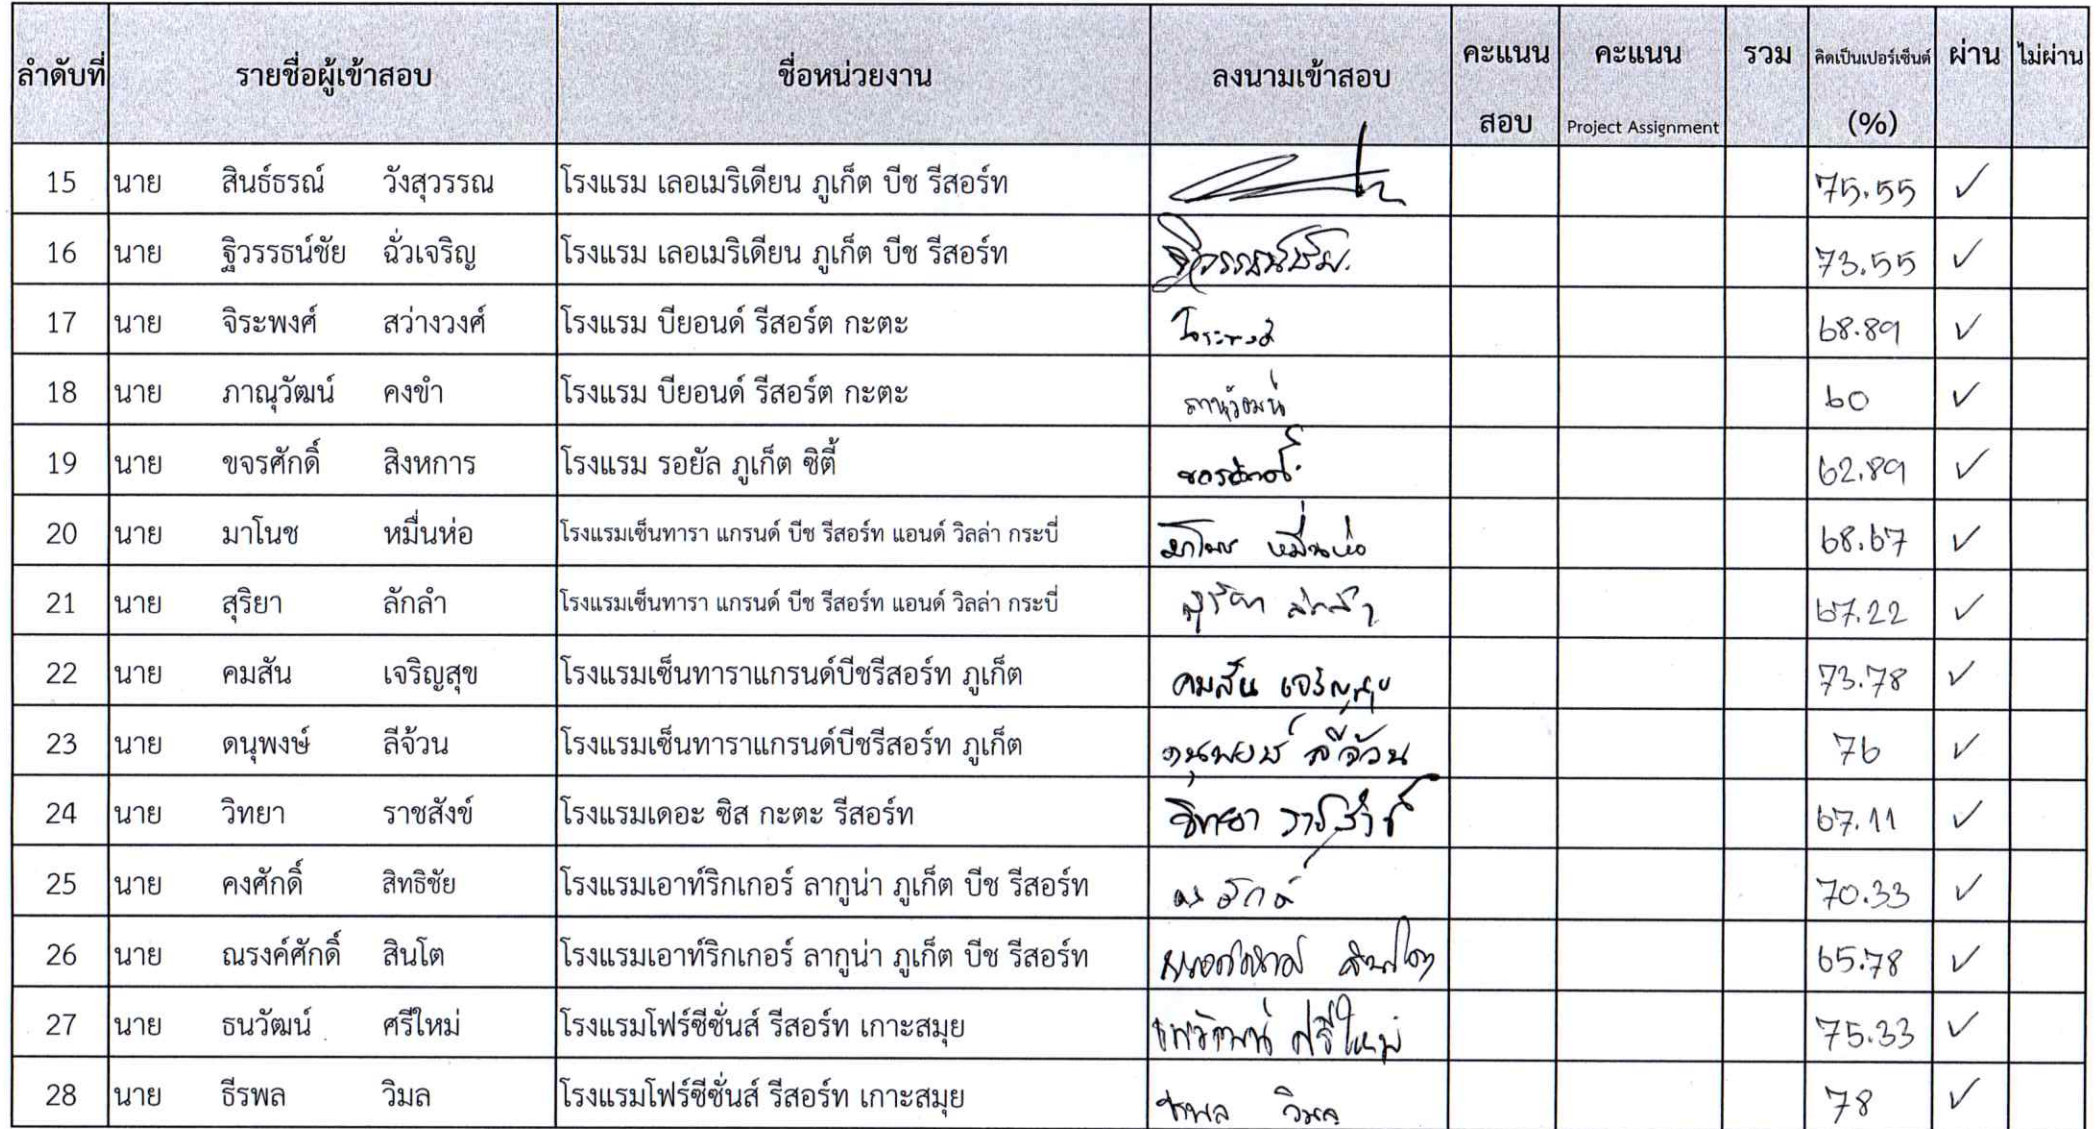 ลำดับที่ รายชื่อผู้เข้าสอบ ชื่อหน่วยงาน ลงนามเข้าสอบ คะแนน สอบ คะแนน Project Assignment รวม คิดเป็นเปอร์เซ็นต์ (%) ผ่าน ไม่ผ่าน
15 นาย สินธ์ธรณ์ วังสุวรรณ โรงแรม เลอเมริเดียน ภูเก็ต บีช รีสอร์ท 75.55 ✓
16 นาย ฐิวรรธน์ชัย ฉั่วเจริญ โรงแรม เลอเมริเดียน ภูเก็ต บีช รีสอร์ท ฐิวรรธน์ชัย 73.55 ✓
17 นาย จิระพงศ์ สว่างวงศ์ โรงแรม บียอนด์ รีสอร์ต กะตะ จิระพงศ์ 68.89 ✓
18 นาย ภาณุวัฒน์ คงขำ โรงแรม บียอนด์ รีสอร์ต กะตะ ภาณุวัฒน์ 60 ✓
19 นาย ขจรศักดิ์ สิงหการ โรงแรม รอยัล ภูเก็ต ซิตี้ ขจรศักดิ์ 62.89 ✓
20 นาย มาโนช หมื่นห่อ โรงแรมเซ็นทารา แกรนด์ บีช รีสอร์ท แอนด์ วิลล่า กระบี่ มาโนช หมื่นห่อ 68.67 ✓
21 นาย สุริยา ลักลำ โรงแรมเซ็นทารา แกรนด์ บีช รีสอร์ท แอนด์ วิลล่า กระบี่ สุริยา ลักลำ 67.22 ✓
22 นาย คมสัน เจริญสุข โรงแรมเซ็นทาราแกรนด์บีชรีสอร์ท ภูเก็ต คมสัน เจริญสุข 73.78 ✓
23 นาย ดนุพงษ์ ลีจ้วน โรงแรมเซ็นทาราแกรนด์บีชรีสอร์ท ภูเก็ต ดนุพงษ์ ลีจ้วน 76 ✓
24 นาย วิทยา ราชสังข์ โรงแรมเดอะ ซิส กะตะ รีสอร์ท วิทยา ราชสังข์ 67.11 ✓
25 นาย คงศักดิ์ สิทธิชัย โรงแรมเอาท์ริกเกอร์ ลากูน่า ภูเก็ต บีช รีสอร์ท คงศักดิ์ 70.33 ✓
26 นาย ณรงค์ศักดิ์ สินโต โรงแรมเอาท์ริกเกอร์ ลากูน่า ภูเก็ต บีช รีสอร์ท ณรงค์ศักดิ์ สินโต 65.78 ✓
27 นาย ธนวัฒน์ ศรีใหม่ โรงแรมโฟร์ซีซั่นส์ รีสอร์ท เกาะสมุย ธนวัฒน์ ศรีใหม่ 75.33 ✓
28 นาย ธีรพล วิมล โรงแรมโฟร์ซีซั่นส์ รีสอร์ท เกาะสมุย ธีรพล วิมล 78 ✓